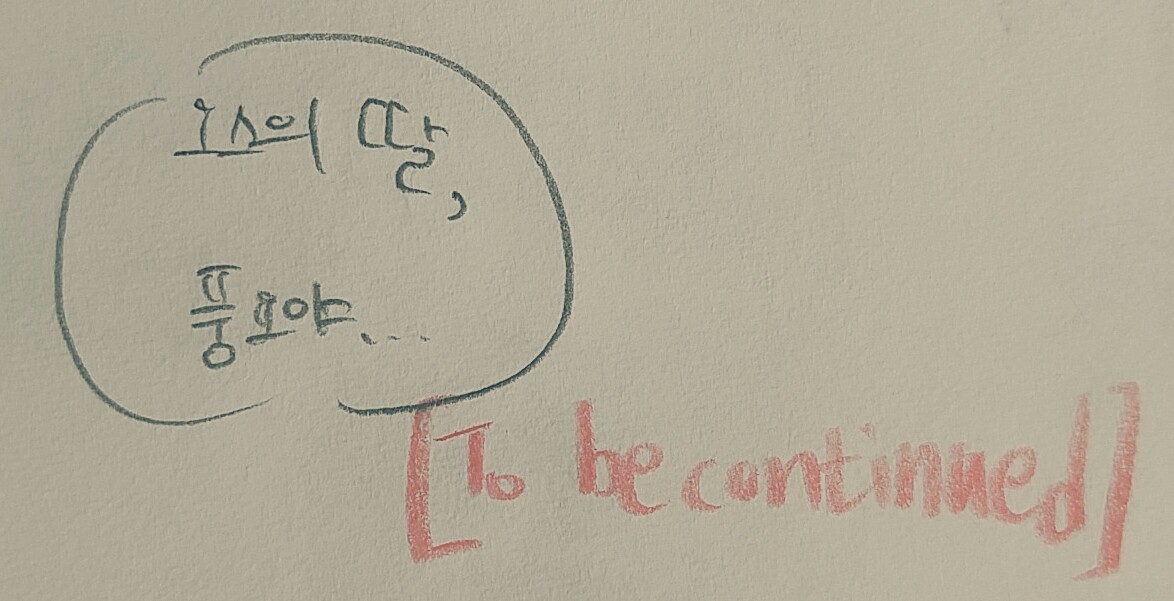 오스의 딸,
풍요야...
[To be continued]